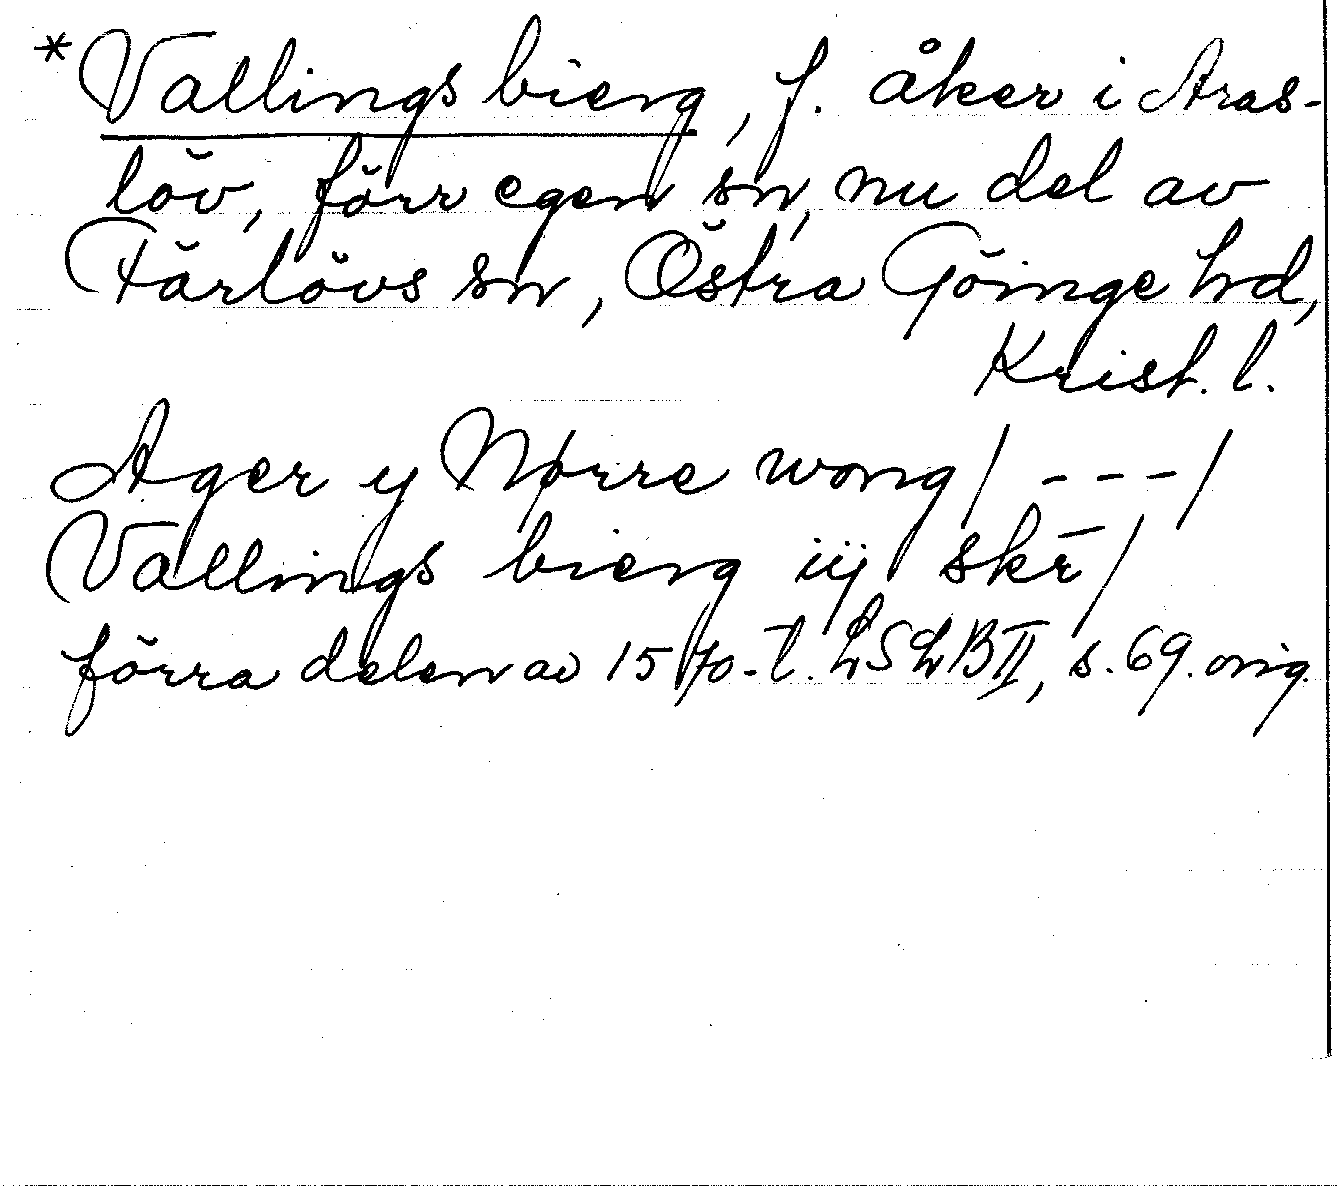 *Vallings bierg, f. åker i Aras-
löv, förr egen sn, nu del av
Färlövs sn, Östra Göinge hd,
Krist. l.
Ager y Nørre wong/ ---/
Vallings bierg iij skr̄/
förra delen av 1570-t. LSLB II, s. 69. orig.